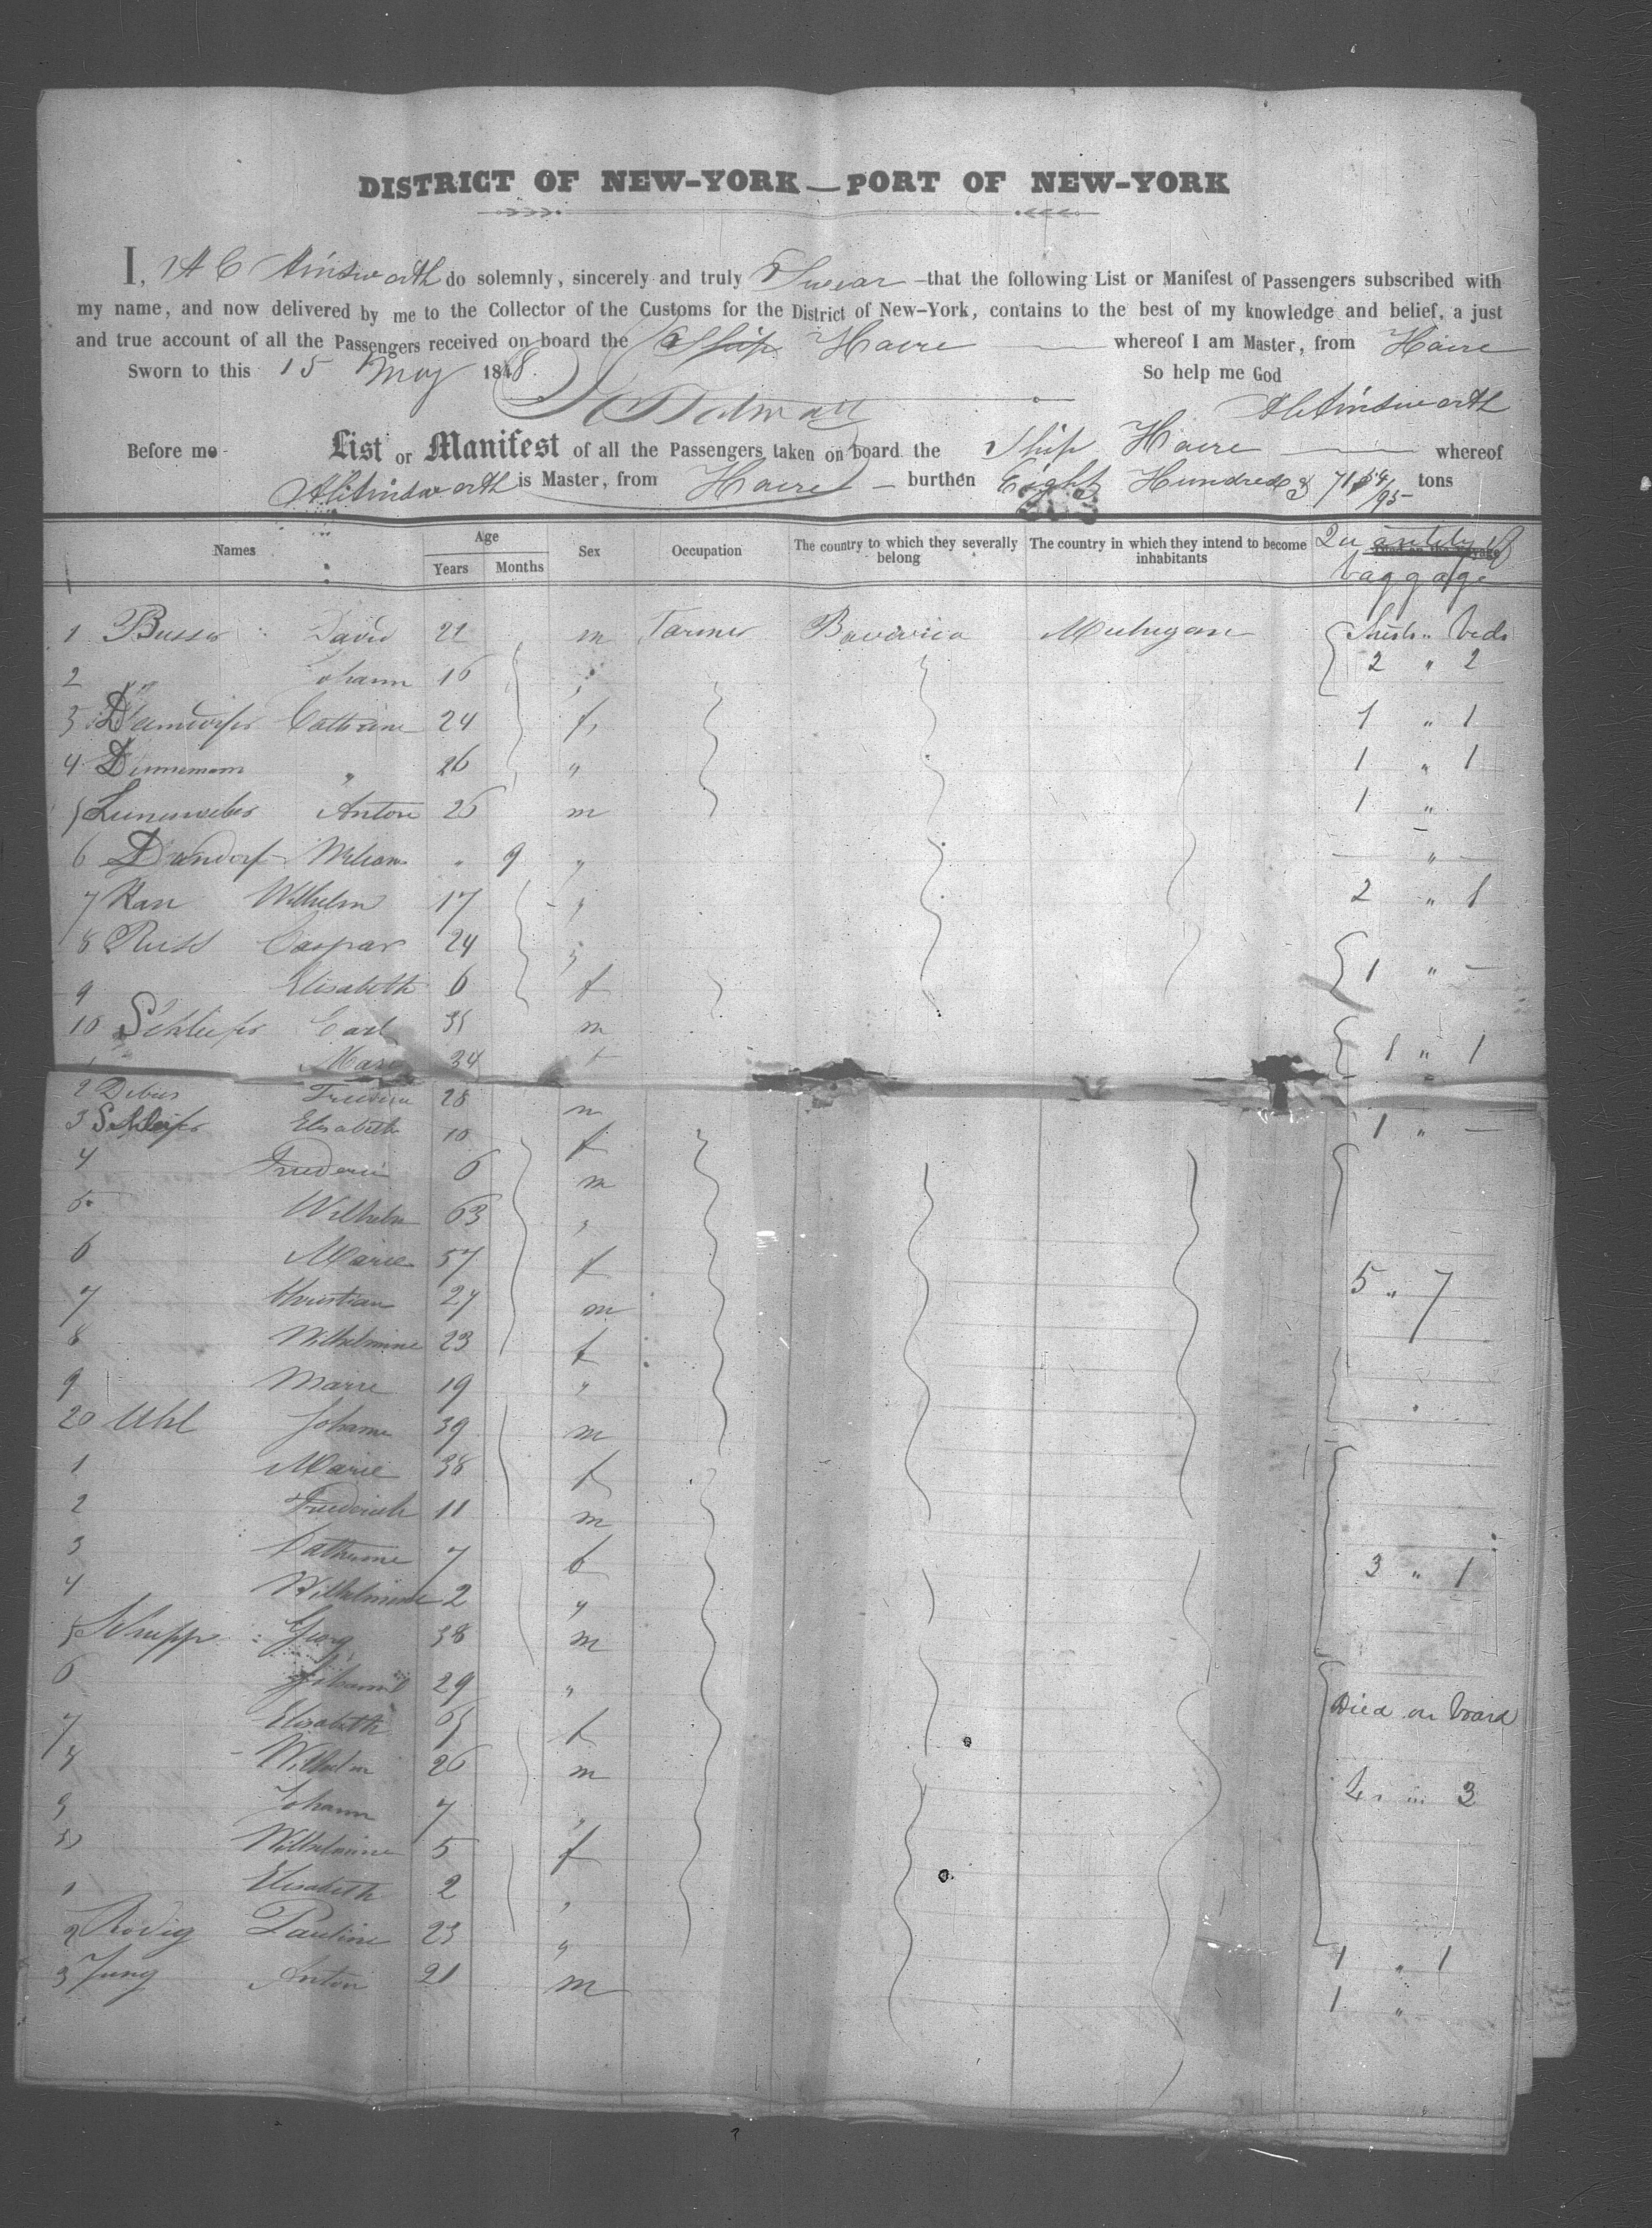 DISTRICT OF NEW-YORK—PORT OF NEW-YORK
I, A C Ainsworth do solemnly, sincerely and truly Swear that the following List or Manifest of Passengers subscribed with
my name, and now delivered by me to the Collector of the Customs for the District of New-York, contains to the best of my knowledge and belief, a just
and true account of all the Passengers received on board the Ship Havre whereof I am Master, from Havre
Sworn to this 15 May 1848. So help me God
A C Ainsworth
Before me List or Manifest of all the Passengers taken on board the Ship Havre whereof
A C Ainsworth is Master, from Havre burthen Eight Hundred & 71 54/95 tons
Names Age Years Months Sex Occupation The country to which they severally belong The country in which they intend to become inhabitants Quantity of baggage
1 Busser David 21 m Farmer Bavaria Michigan Chests " beds
2 " Johann 16 " 2 " 2
3 Catherine 24 f 1 " 1
4 Dennemann " 26 " 1 " 1
5 Anton 26 m 1 "
6 " 9 " — " —
7 Wilhelm 17 " 2 " 1
8 Caspar 24 " 1 " —
9 Elisabeth 6 f
10 Schleifer Carl 35 m 1 " 1
1 Marie 34 f
2 Debus 28 m 1 " —
3 Schleifer Elisabeth 10 f
4 6 m
5 Wilhelm 63 "
6 Marie 57 f 5 " 7
7 Christian 27 m
8 Wilhelmine 23 f
9 Marie 19 "
20 Uhl Johann 39 m
1 Marie 38 f
2 Friederich 11 m
3 Catherine 7 f 3 " 1
4 Wilhelmine 2 "
5 Krupp Georg 38 m
6 Johann 29 "
7 Elisabeth 65 f Died on board
8 Wilhelm 26 m
9 Johann 7 " 3
30 Wilhelmine 5 f
1 Elisabeth 2 "
2 Rodig Pauline 23 " 1 " 1
3 Jung Anton 21 m 1 "